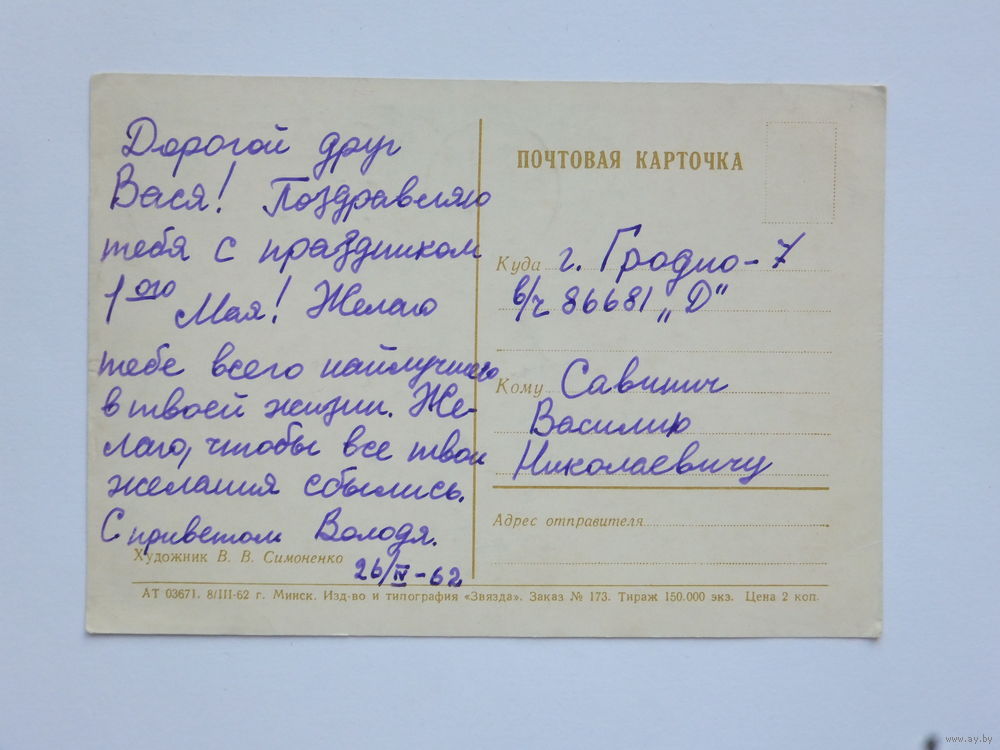 Дорогой друг
Вася! Поздравляю
тебя с праздником
1ого Мая! Желаю
тебе всего найлучшего
в твоей жизни. Же-
лаю, чтобы все твои
желания сбылись.
С приветом Володя.
26/IV-62
Художник В. В. Симоненко
ПОЧТОВАЯ КАРТОЧКА
Куда г. Гродно-7
в/ч 86681 „Д“
Кому Савинич
Василию
Николаевичу
Адрес отправителя
АТ 03671. 8/III-62 г. Минск. Изд-во и типография «Звязда». Заказ № 173. Тираж 150.000 экз. Цена 2 коп.
www.ay.by